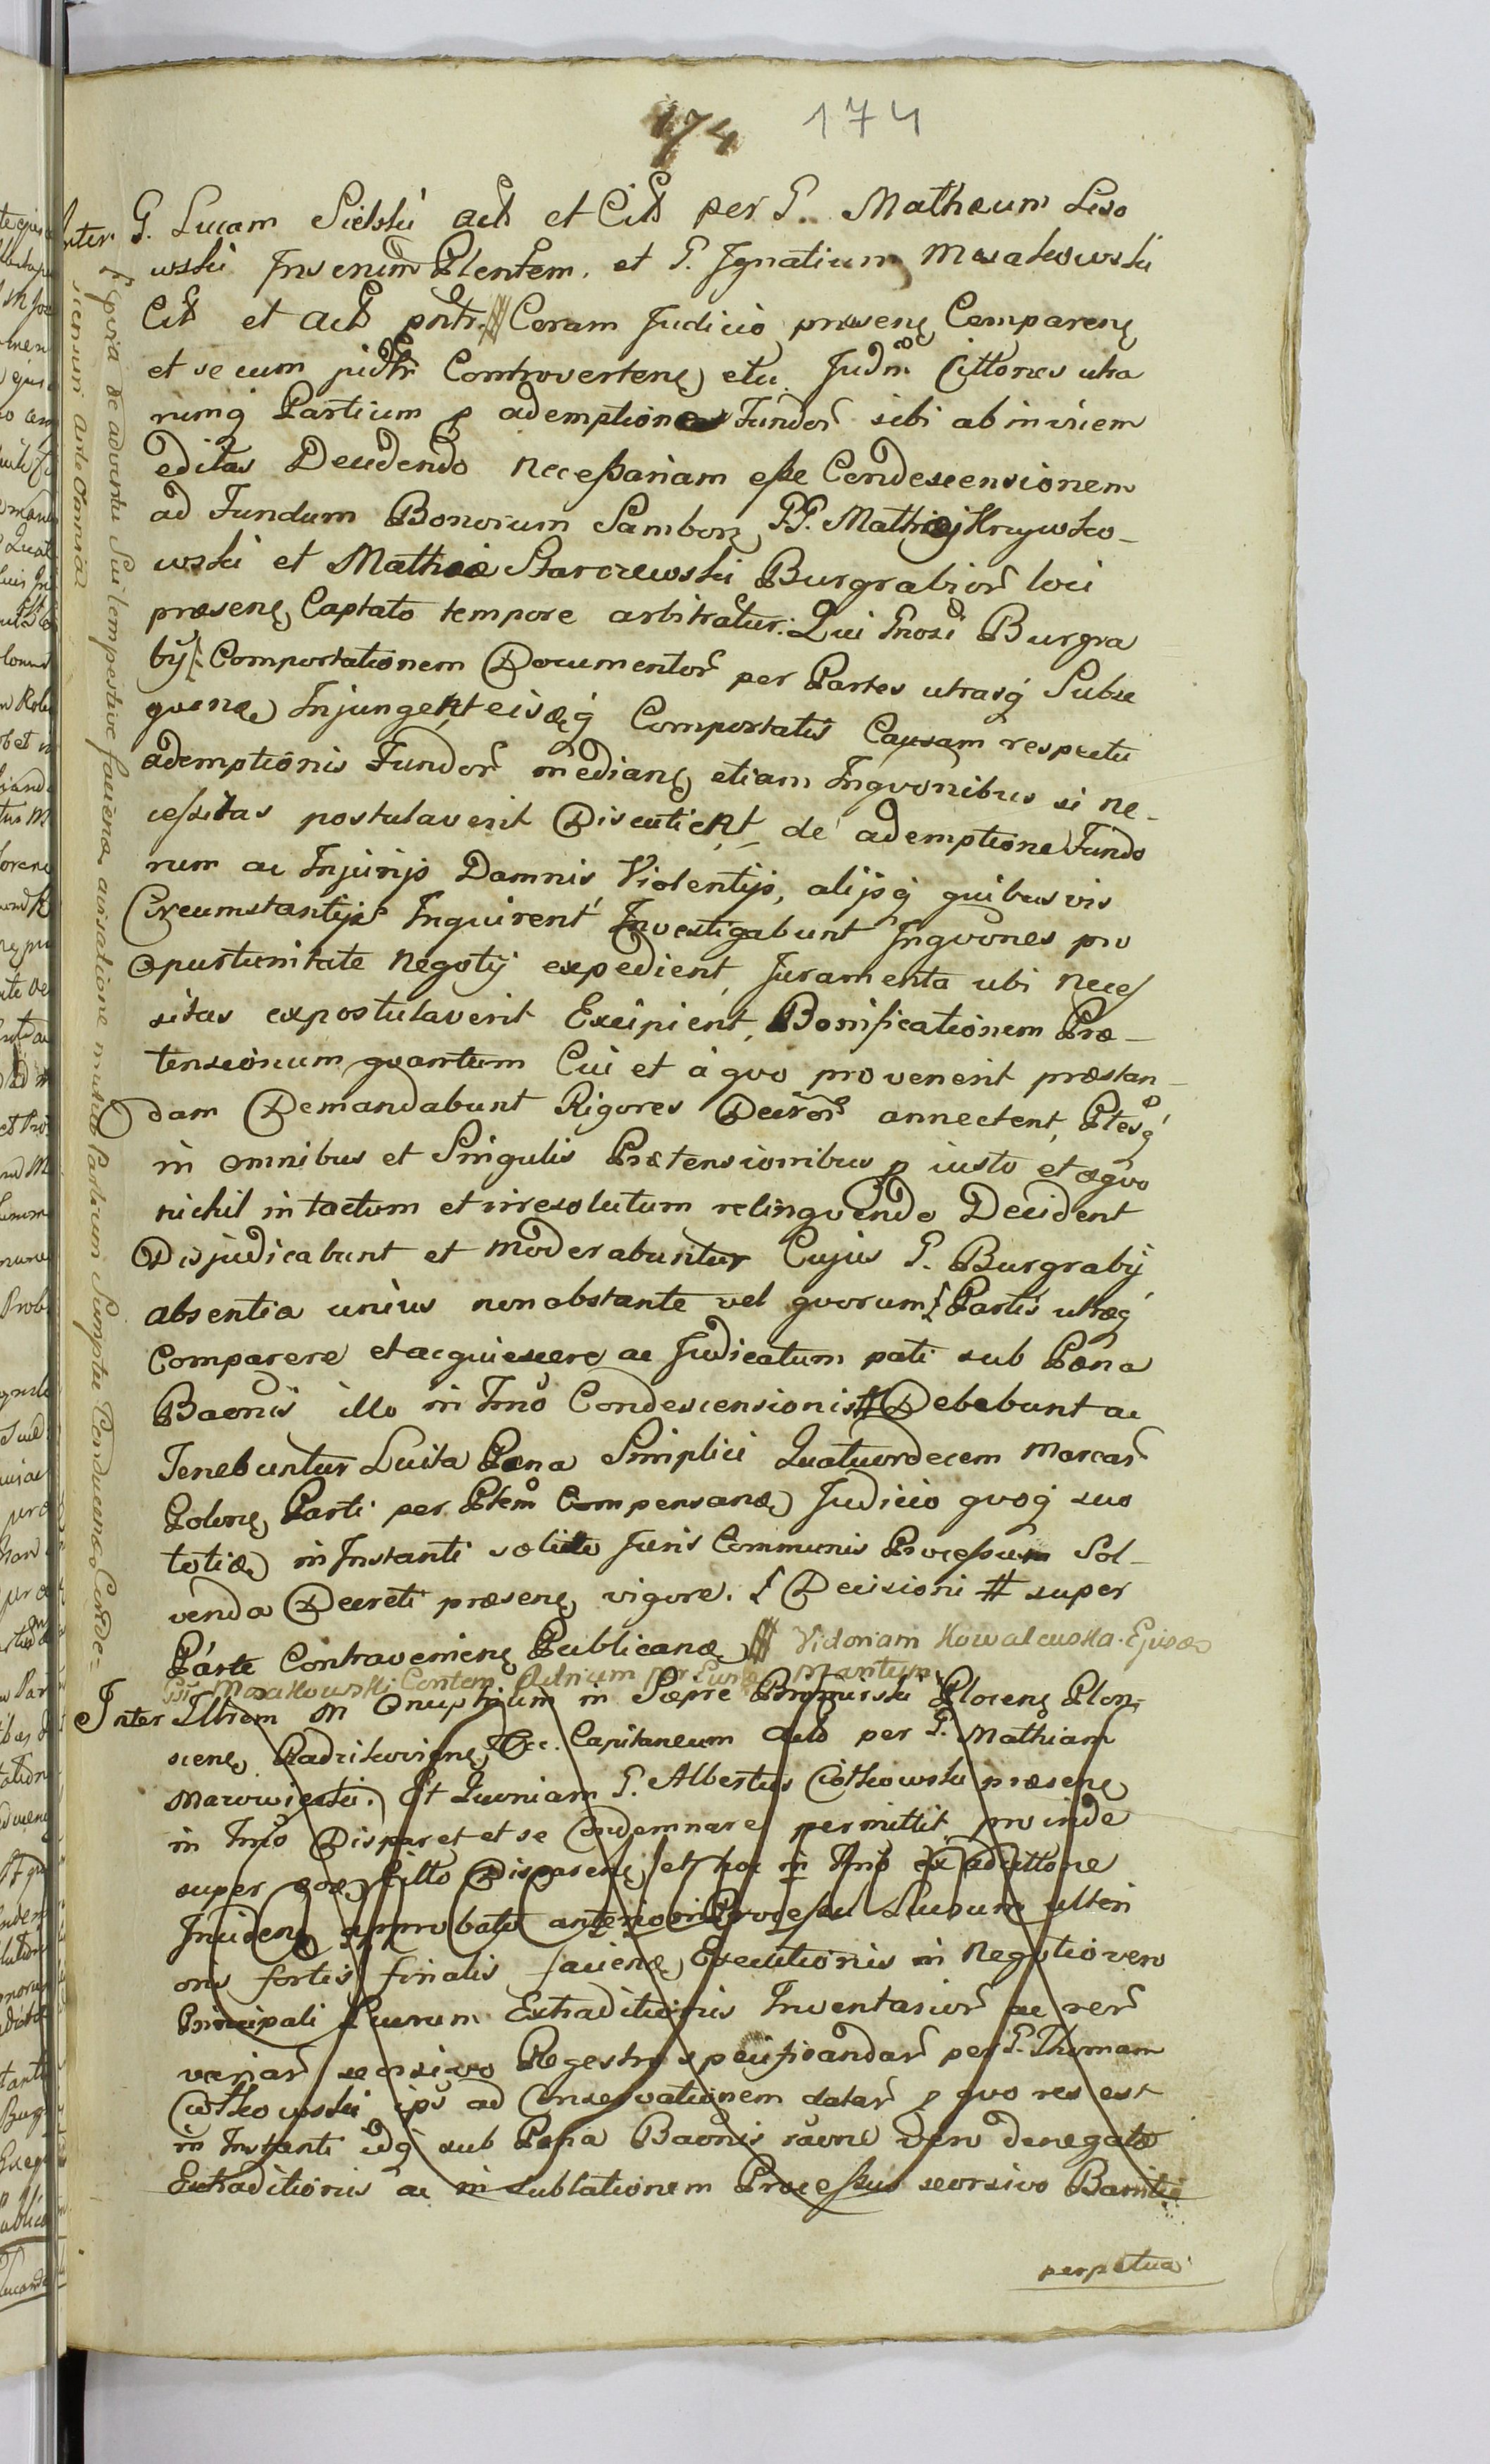 174 174
Inter G. Lucam Sielski act et Cit per G. Matheum Liso
wski Juvenum Ptentem, et G. Ignatium Mosakowski
Cit et act pntr. Coram Judicio præsenę Comparenę
et secum jidtr Controvertenę etc. Judm Cittones utra
rumq Partium p ademptiones Fundor sibi abinvicem
editas Decidendo necessariam esse Condescensionem
ad Fundum Bonorum Samborz GG. Mathiæ Krzywko-
wski et Mathiæ Starczewski Burgrabior loci
præsenę Captato tempore arbitratur. Qui Gnosi Burgra
bÿ Comportationem Documentor per Partes utrasq Subse
quenæ Injungent eisæq Comportatis Causam respectu
ademptionis Fundor medianę etiam Inqvonibus si ne-
cessitas postulaverit Discutient de ademptione Fundo
rum ac Injurijs Damnis Violentijs, alijsq quibusvis
Circumstantijs Inquirent Investigabunt Inqvones pro
opurtunitate Negotÿ expedient, Juramenta ubi neces
sitas expostulaverit Excipient, Bonificationem Præ-
tensionum quantum Cui et à quo provenerit præstan-
dam Demandabunt Rigores Decretor annectent, Ptesq
in omnibus et Singulis Prætensionibus p iusto et æquo
nichil intactum et irresolutum relinquendo Decident
Disjudicabunt et moderabuntur Cujus G. Burgrabÿ
absentia unius non obstante vel quorum Partis utræq
Comparere et acquiescere ac Judicatum pati sub Pœna
Baonis illo in Tmo Condescensionis Debebunt ac
Tenebuntur Luita Pœna Simplici Quatuordecem Marcar
Polonę Parti per Ptem Compensanæ Judicio quoq suo
totiæ in Instanti solito Juris Communis Processum Sol-
venda Decreti præsenę vigore. Decisioni # super
Parte Contravenienę Publicanæ Victoriam Kowalewska Ejusæ
Gr Mosakowski Contem Actrium per Eund Mantum
Inter Illrem M Onuphrium in Sæpre Bromirski Plocenę Plon
scenę Radzikovienę &c. Capitaneum Act per G. Mathiam
Marowieski. Et Quoniam G. Albertus Ciołkowski præsenę
in Tmo Disparet et se Condemnare permittit proinde
super eoæ Citto Disparenę et hoc in Tmo ex adcittone
Incidenę approbato anteriori Processu Lucrum ulteri
oris fortis finalis facienæ Executionis in Negotio vero
Principali Lucrum Extraditionis Inventarior ac rer
variar seorsivo Regestro specificandar per G. Thomam
Ciołkowski ips ad Conservationem datar p quo res est
in Instanti idq sub Pœna Baonis raone vero denegatæ
Extraditionis ac in sublationem Processus seorsivo Banitio
perpetua
ipsa de adventu Sui tempestive facienæ avisatione mutuo Partium Sumptu Conducenæ Conde-
scensuri ante omnia